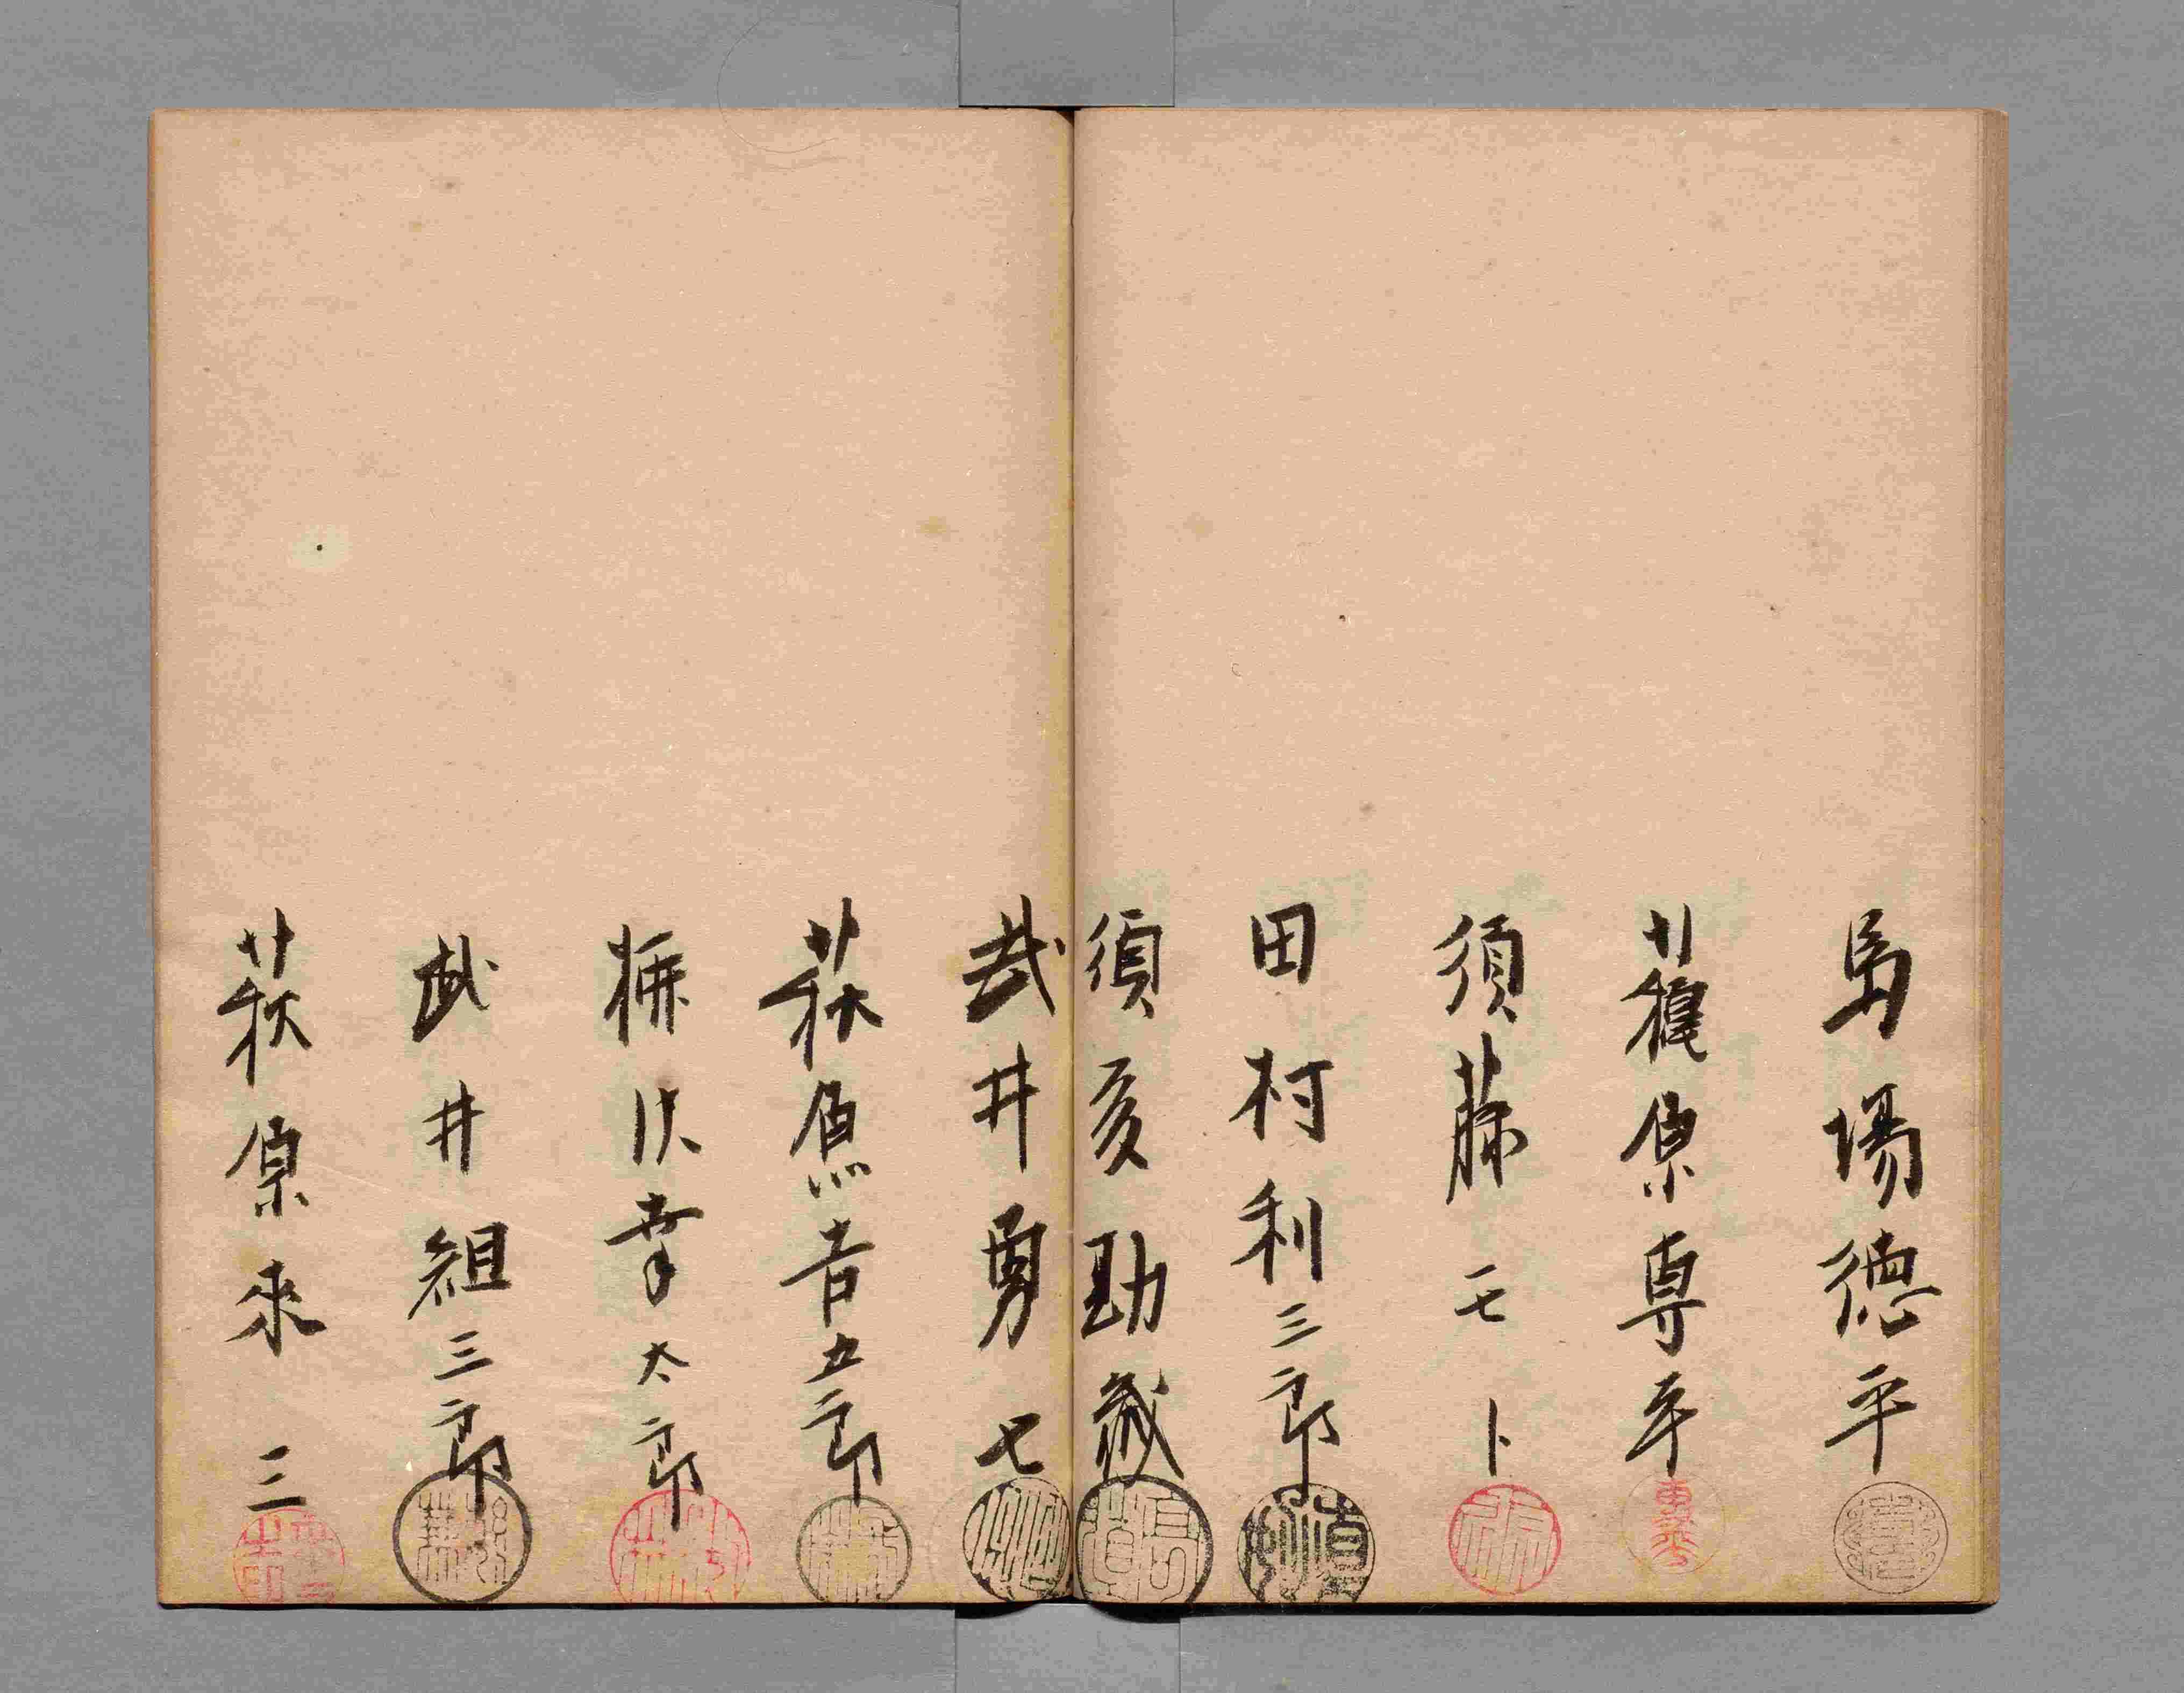 馬場徳平
蘒原專平
須藤モト
田村利三郎
須亥勘蔵
武井勇七
萩原吉五郎
幸太郎
武井組三郎
萩原来三